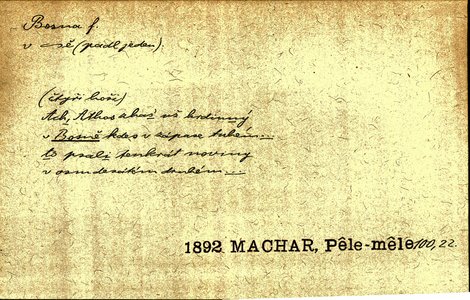 Bosna f.
v –ně (padl jeden).
(čtyři hoši)
Ach, Athos skonal už hrdinný
v Bosně kdes v zápase tuhém...
to psali tenkrát noviny
v osmdesátém druhém...
1892 MACHAR, Pêle-mêle 100, 22.